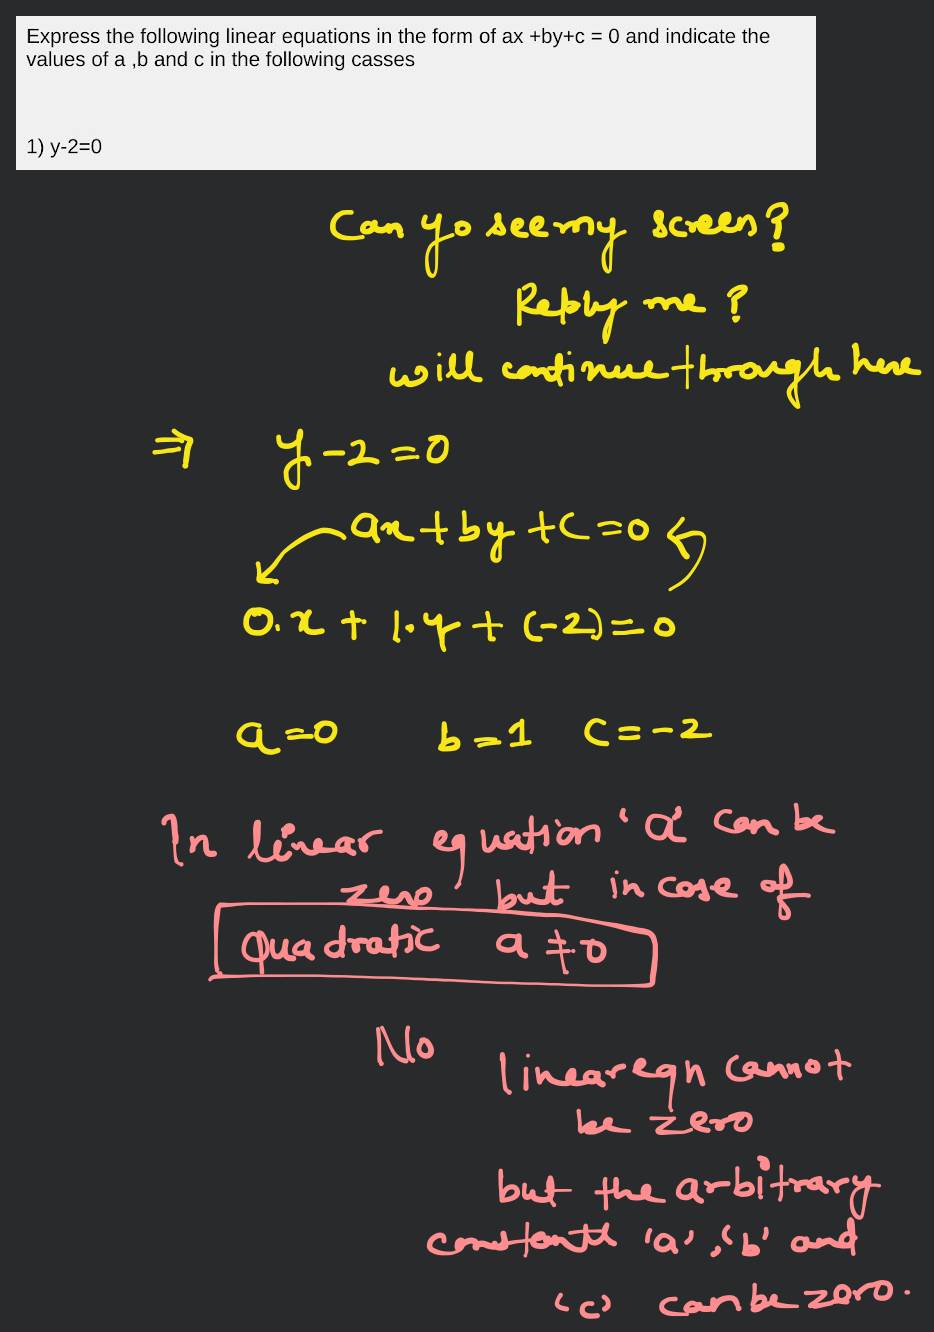 Express the following linear equations in the form of ax +by+c = 0 and indicate the
values of a ,b and c in the following casses
1) y-2=0
Can yo see my screen?
Reply me ?
will continue through here
⇒ y-2=0
ax+by+c=0
0.x + 1.y + (-2)=0
a=0 b=1 c=-2
In linear equation 'a' can be
zero but in case of
Quadratic a≠0
No
linear eqn cannot
be zero
but the arbitrary
'a','b' and
'c' can be zero.